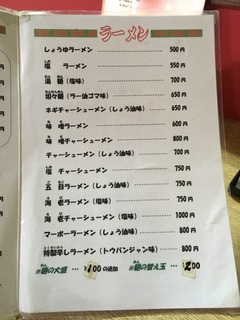 ラーメン
しょうゆラーメン 500円
塩 ラーメン 550円
湯麺(塩味) 700円
坦々麺(ラー油ゴマ味) 650円
ネギチャーシューメン(しょう油味) 750円
味噌ラーメン 600円
味噌チャーシューメン 800円
チャーシューメン(しょう油味) 700円
塩チャーシューメン 750円
五目ラーメン(しょう油味) 750円
海老ラーメン(しょう油味) 850円
海老チャーシューメン(塩味) 1000円
マーボーラーメン(しょう油味) 800円
特製辛しラーメン(トウバンジャン味) 800円
※麺の大盛 … ¥100の追加 ※麺の替え玉 … ¥200